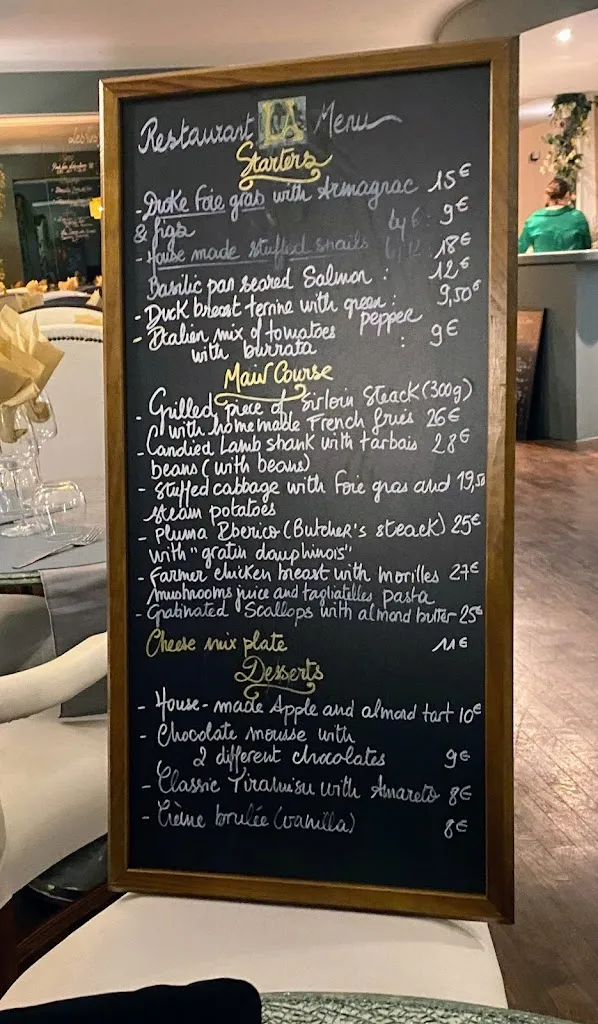 Restaurant LA Menu
Starters
- Droke foie gras with Armagnac 15€
& figs by 6: 9€
- House made stuffed snails by 12: 18€
Basilic pan seared Salmon : 12€
- Duck breast terrine with green : 9,50€
pepper
- Italien mix of tomatoes : 9€
with burrata
Main Course
- Grilled piece of Sirloin Steack (300g)
with home made French fries 26€
- Candied Lamb shank with tarbais 28€
beans (with beans)
- Stuffed cabbage with Foie gras and 19,50
steam potatoes
- Pluma Iberico (Butcher's steack) 25€
with "gratin dauphinois"
- Farmer chicken breast with Morilles 27€
mushrooms juice and tagliatelles pasta
- Gratinated Scallops with almond butter 25€
Cheese mix plate 11€
Desserts
- House-made Apple and almond tart 10€
- Chocolate mousse with
2 different chocolates 9€
- Classic Tiramisu with Amareto 8€
- Crème brulée (vanilla) 8€